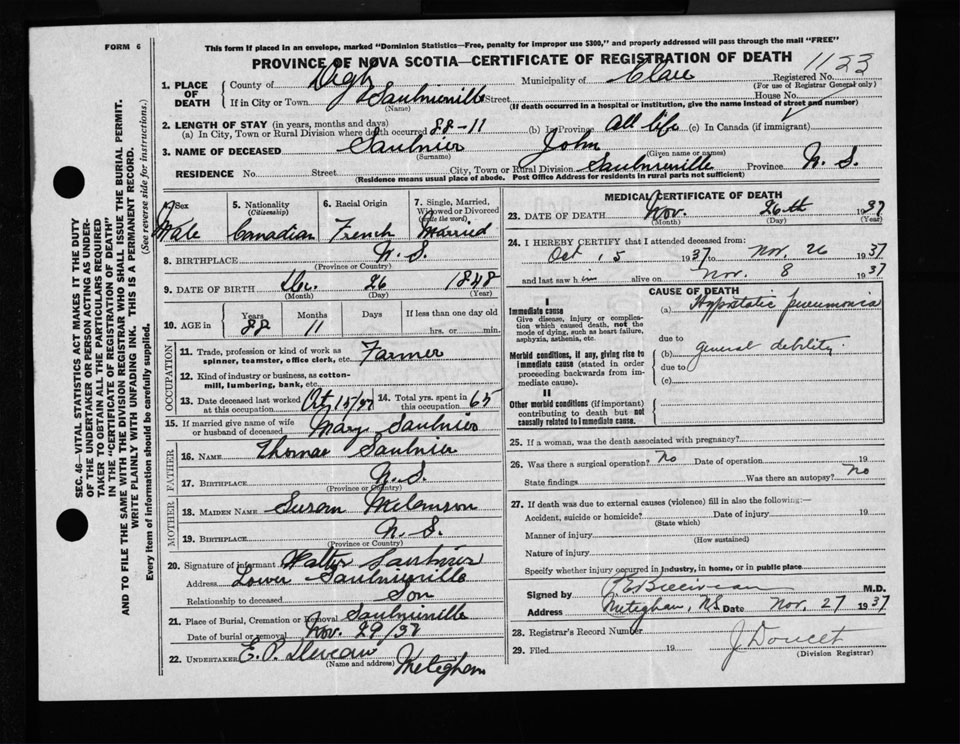 FORM 6
This form if placed in an envelope, marked "Dominion Statistics—Free, penalty for improper use $300," and properly addressed will pass through the mail "FREE"
PROVINCE OF NOVA SCOTIA—CERTIFICATE OF REGISTRATION OF DEATH
1133
1. PLACE OF DEATH
County of Digby Municipality of Clare Registered No.
(For use of Registrar General only)
If in City or Town Saulnierville Street House No.
(Name) (If death occurred in a hospital or institution, give the name instead of street and number)
2. LENGTH OF STAY (in years, months and days)
(a) In City, Town or Rural Division where death occurred 88-11 (b) In Province all life (c) In Canada (if immigrant)
3. NAME OF DECEASED Saulnier John
(Surname) (Given name or names)
RESIDENCE No. Street City, Town or Rural Division Saulnierville Province N.S.
(Residence means usual place of abode. Post Office Address for residents in rural parts not sufficient)
4. Sex 5. Nationality (Citizenship) 6. Racial Origin 7. Single, Married, Widowed or Divorced (write the word)
Male Canadian French Married
8. BIRTHPLACE N.S.
(Province or Country)
9. DATE OF BIRTH Dec. 26 1848
(Month) (Day) (Year)
10. AGE in Years Months Days If less than one day
88 11 hrs. or min.
OCCUPATION
11. Trade, profession or kind of work as spinner, teamster, office clerk, etc. Farmer
12. Kind of industry or business, as cotton-mill, lumbering, bank, etc.
13. Date deceased last worked at this occupation Oct 15/37 14. Total yrs. spent in this occupation 65
15. If married give name of wife or husband of deceased Mary Saulnier
FATHER
16. NAME Thomas Saulnier
17. BIRTHPLACE N.S.
(Province or Country)
MOTHER
18. MAIDEN NAME Susan Melanson
19. BIRTHPLACE N.S.
(Province or Country)
20. Signature of informant Walter Saulnier
Address Lower Saulnierville
Relationship to deceased Son
21. Place of Burial, Cremation or Removal Saulnierville
Date of burial or removal Nov. 29/37
22. UNDERTAKER E. P. Deveau Meteghan
(Name and address)
MEDICAL CERTIFICATE OF DEATH
23. DATE OF DEATH Nov. 26th 1937
(Month) (Day) (Year)
24. I HEREBY CERTIFY that I attended deceased from:
Oct 15 1937 to Nov. 26 1937
and last saw him alive on Nov. 8 1937
CAUSE OF DEATH
I
Immediate cause
Give disease, injury or complication which caused death, not the mode of dying, such as heart failure, asphyxia, asthenia, etc.
(a) Hypostatic pneumonia
due to
Morbid conditions, if any, giving rise to immediate cause (stated in order proceeding backwards from immediate cause).
(b) general debility
due to
(c)
II
Other morbid conditions (if important) contributing to death but not causally related to immediate cause.
25. If a woman, was the death associated with pregnancy?
26. Was there a surgical operation? No Date of operation 19
State findings Was there an autopsy? no
27. If death was due to external causes (violence) fill in also the following:—
Accident, suicide or homicide? Date of injury 19
(State which)
Manner of injury
(How sustained)
Nature of injury
Specify whether injury occurred in industry, in home, or in public place
Signed by M.D.
Address Meteghan, N.S. Date Nov. 27 1937
28. Registrar's Record Number
29. Filed 19 J Doucet
(Division Registrar)
SEC. 46—VITAL STATISTICS ACT MAKES IT THE DUTY
OF THE UNDERTAKER OR PERSON ACTING AS UNDER-
TAKER TO OBTAIN ALL THE PARTICULARS REQUIRED
IN THE "CERTIFICATE OF REGISTRATION OF DEATH"
AND TO FILE THE SAME WITH THE DIVISION REGISTRAR WHO SHALL ISSUE THE BURIAL PERMIT.
WRITE PLAINLY WITH UNFADING INK. THIS IS A PERMANENT RECORD.
Every item of information should be carefully supplied. (See reverse side for instructions.)